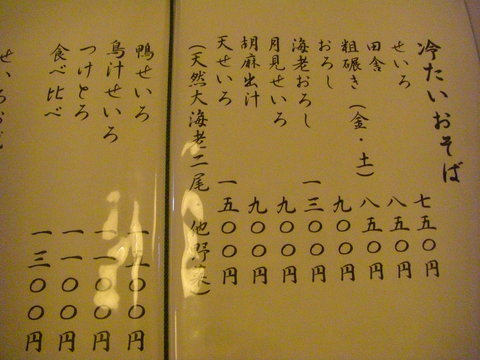 冷たいおそば
せいろ 七五〇円
田舎 八五〇円
粗碾き(金・土) 八五〇円
おろし 九〇〇円
海老おろし 一三〇〇円
月見せいろ 九〇〇円
胡麻出汁 九〇〇円
天せいろ 一五〇〇円
(天然大海老二尾・他野菜)
鴨せいろ 一五〇〇円
鳥汁せいろ 一一〇〇円
つけとろ 一一〇〇円
食べ比べ 一三〇〇円